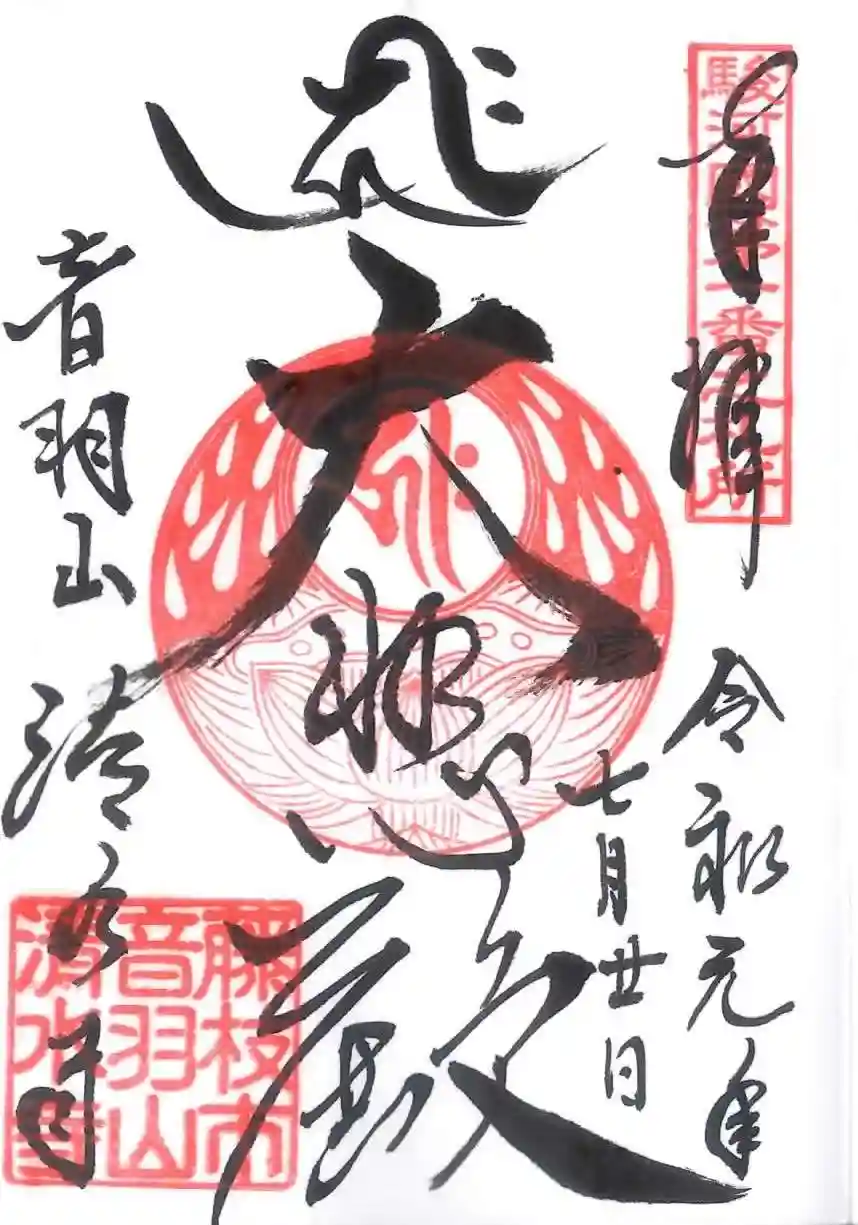 奉拝
令和元年
七月廿日
大悲殿
音羽山
清水寺
駿河國第一番札所
藤枝市
音羽山
清水寺